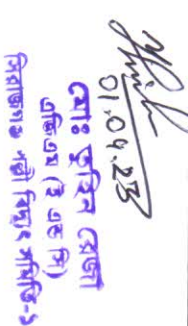 01.04.23
মোঃ তুহিন রেজা
এজিএম (ই এন্ড সি)
সিরাজগঞ্জ পল্লী বিদ্যুৎ সমিতি-১